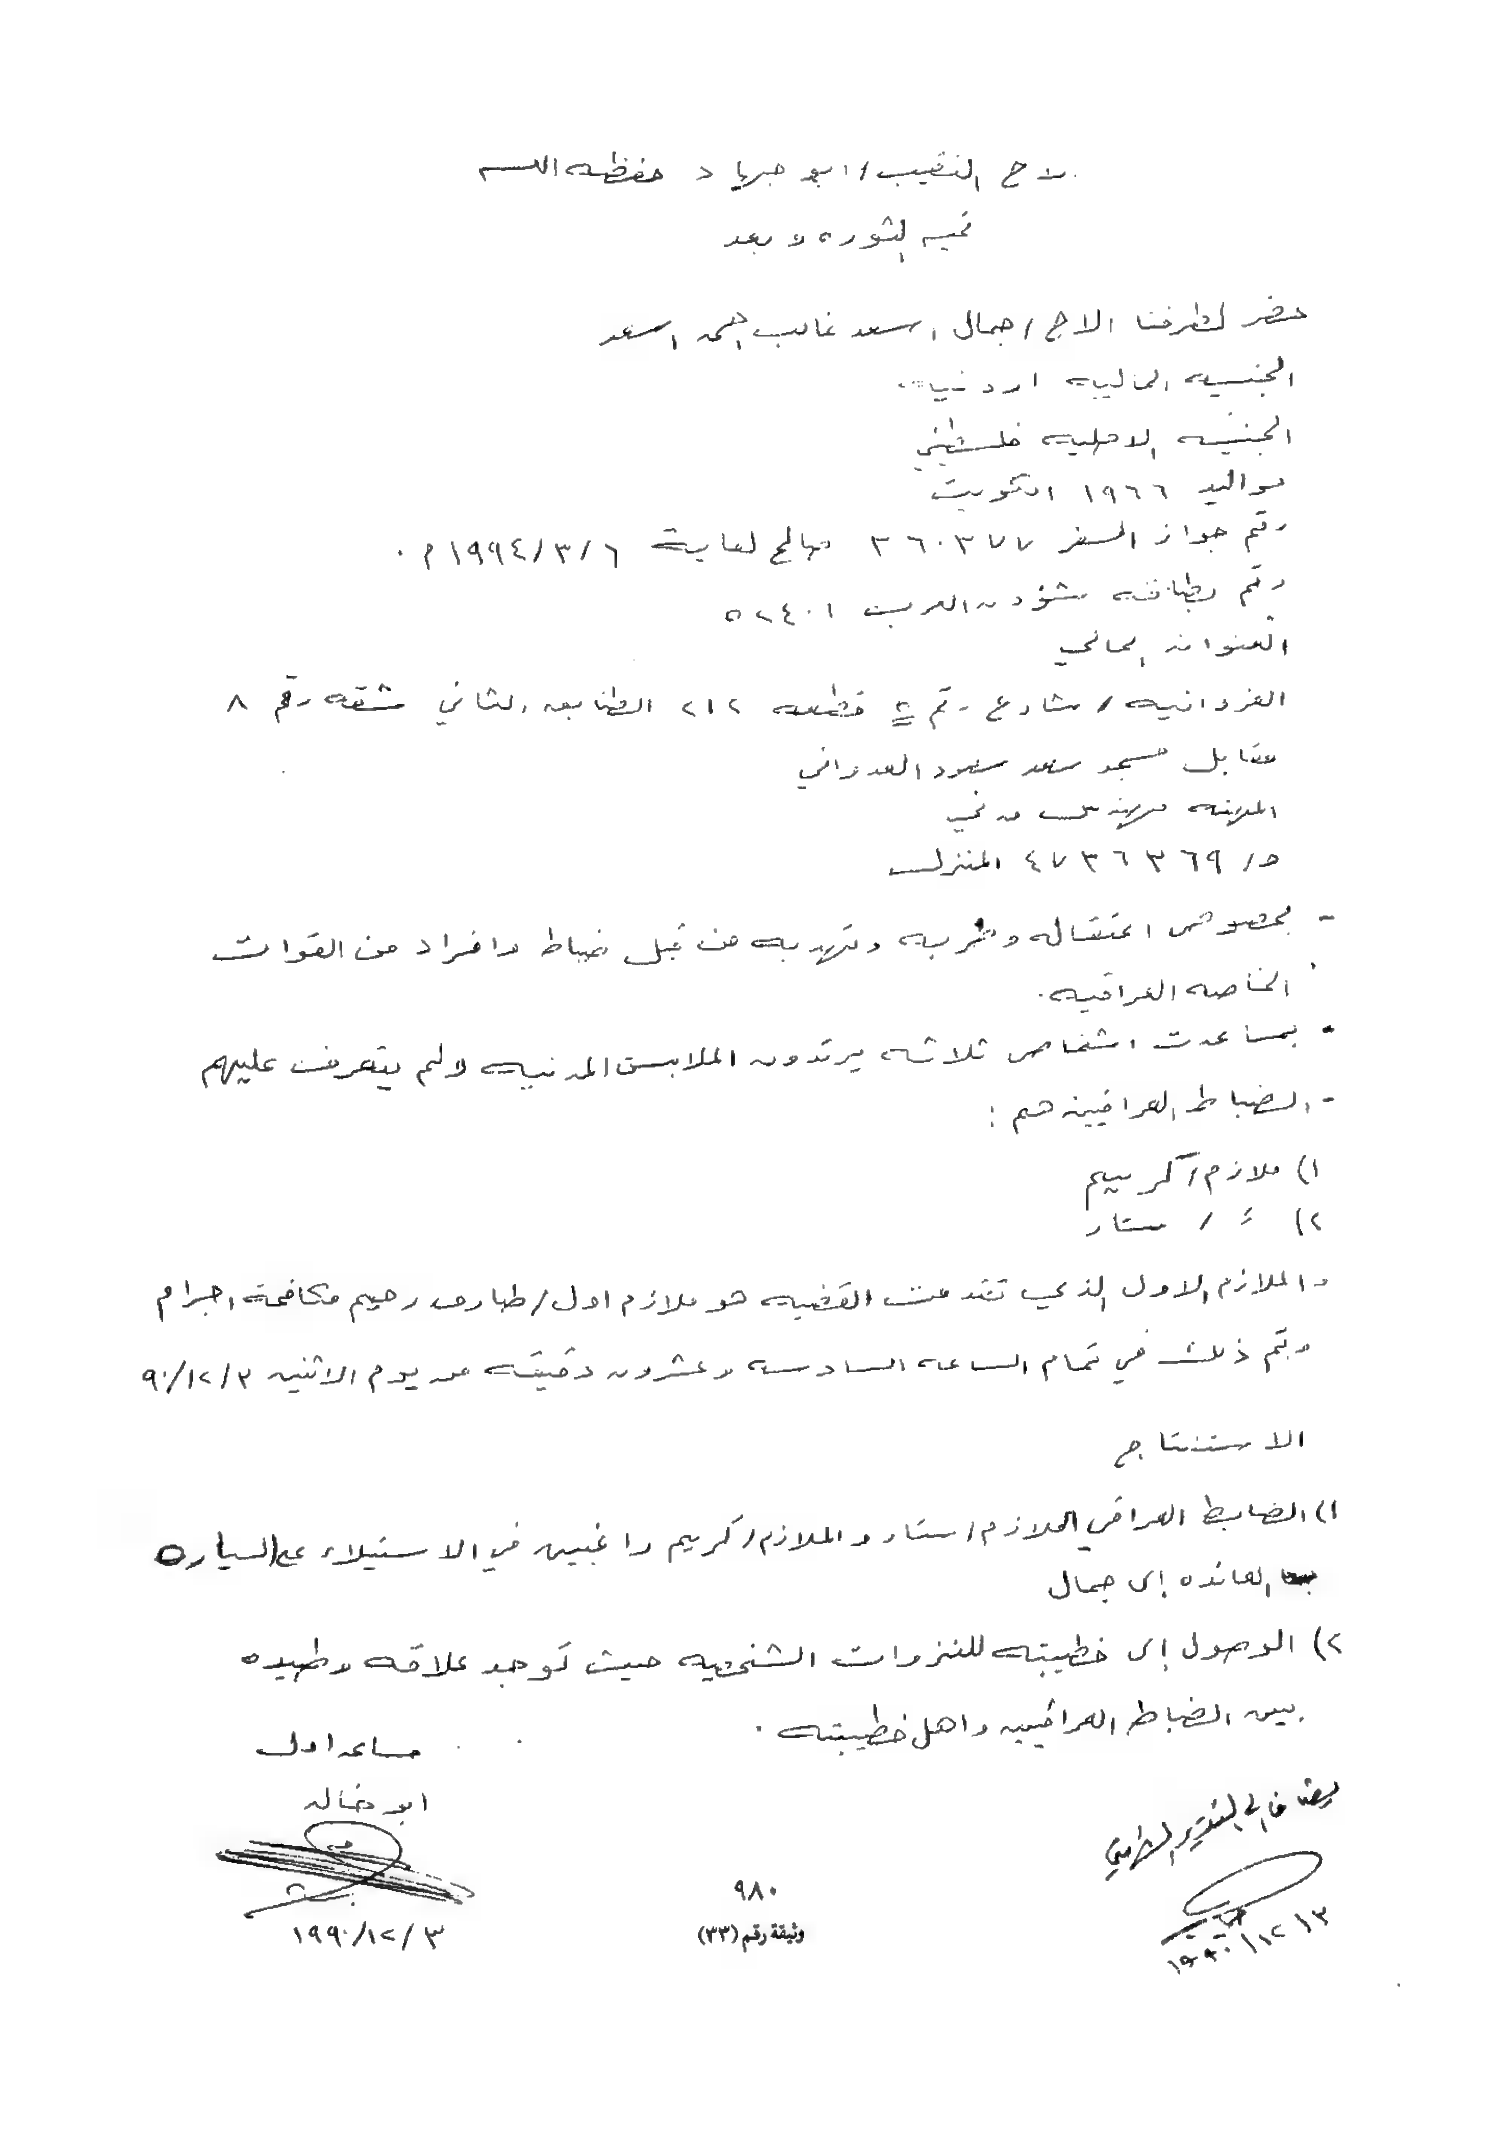 الاخ النقيب / ابو جهاد حفظه الله
تحيه الثوره وبعد
حضر لطرفنا الاخ / جمال اسعد غالب احمد اسعد
الجنسيه الحاليه اردنيه
الجنسيه الاصليه فلسطيني
مواليد ١٩٦٦ الكويت
رقم جواز السفر ٣٦٠٣٧٧ صالح لغاية ١٩٩٤/٣/٦ م.
رقم بطاقة شؤون العرب ٥٢٤٠١
العنوان الحالي
الفروانيه / شارع رقم قطعه ٢١٢ الطابق الثاني شقه رقم ٨
مقابل مسجد سعد سعود العدواني
المهنه مهندس مدني
ت / ٤٧٣٦٣٦٩ المنزل
- بخصوص اعتقاله وضربه وتهديده من قبل ضباط وافراد من القوات
الخاصه العراقيه.
- بمساعدت اشخاص ثلاثه يرتدون الملابس المدنيه ولم يتعرف عليهم
- الضباط العراقيين هم :
١) ملازم / كريم
٢) ء / ستار
والملازم الاول الذي تقدمت القضيه هو ملازم اول / طارق رحيم مكافحة اجرام
وتم ذلك في تمام الساعه السادسه وعشرون دقيقه من يوم الاثنين ٩٠/١٢/٣
الاستنتاج
١) الضابط العراقي الملازم / ستار والملازم / كريم راغبين في الاستيلاء على السياره
العائده إلى جمال
٢) الوصول إلى خطيبته للنزوات الشخصيه حيث توجد علاقه وطيده
بين الضباط العراقيين واهل خطيبته .
مساعد اول
ابو خالد
١٩٩٠/١٢/٣
يضاف إلى التقرير
١٩٩٠/١٢/٣
٩٨٠
وثيقة رقم (٣٣)